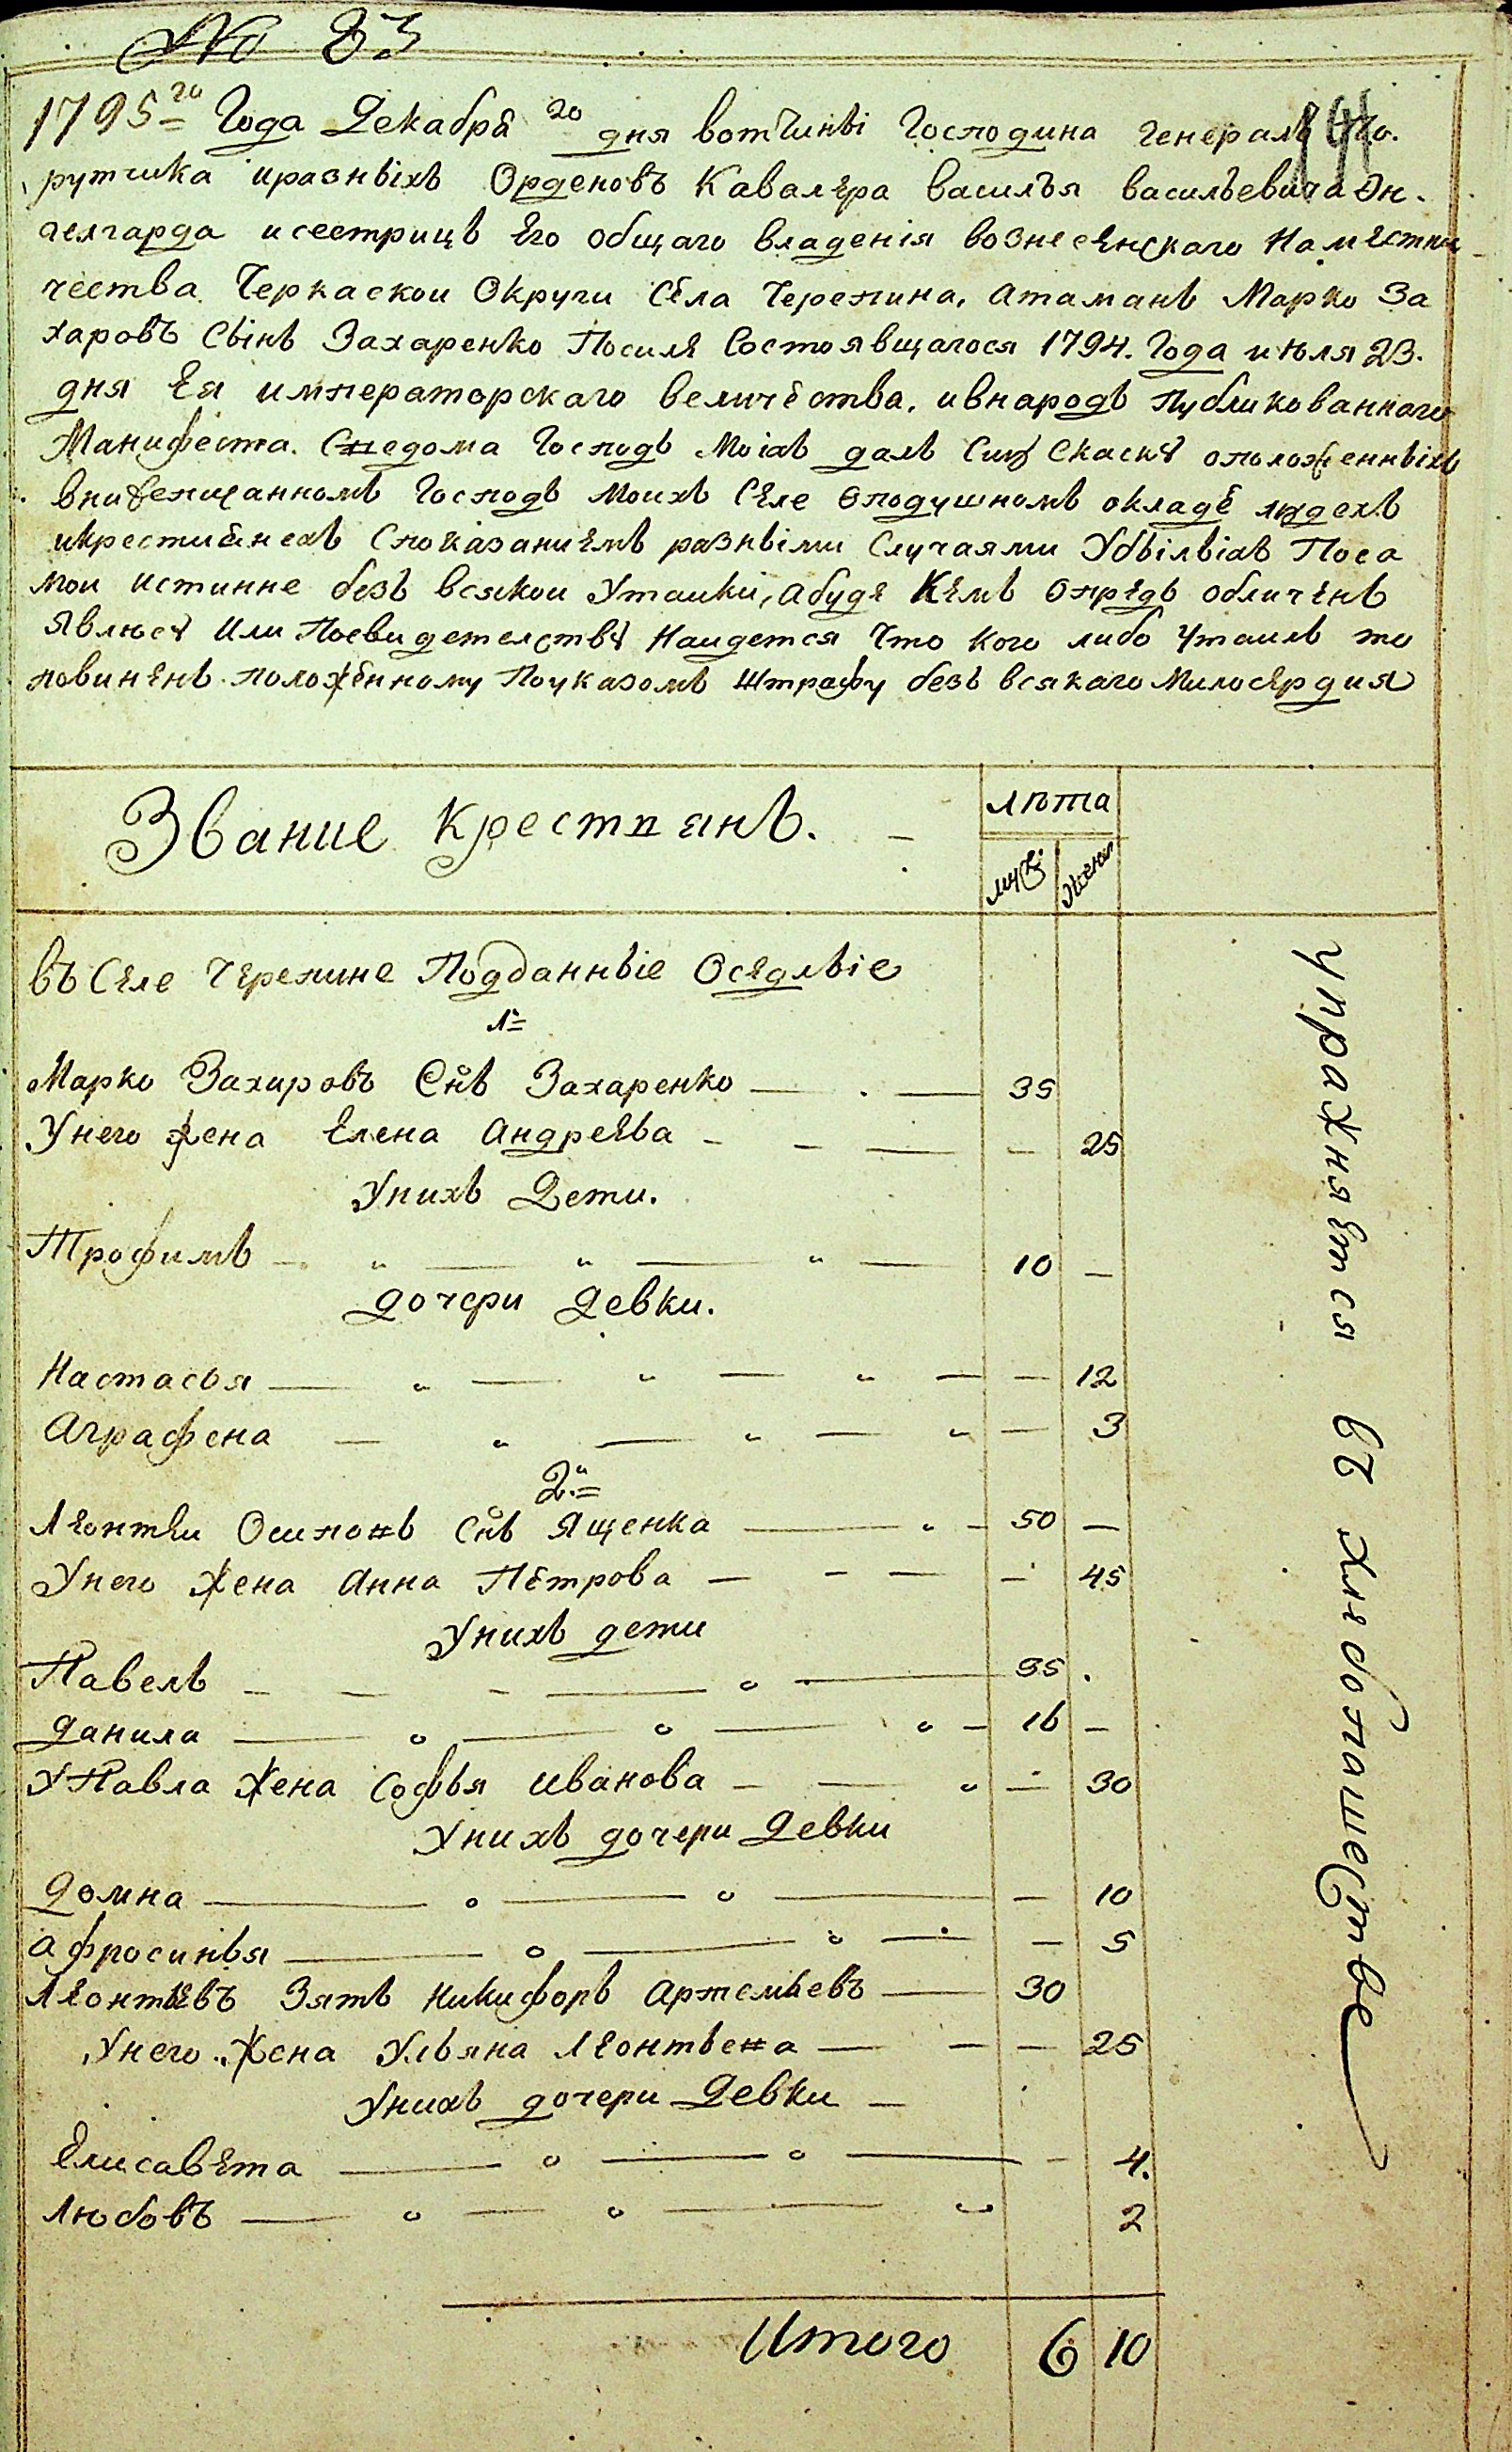 № 83
1795го Года Декабря 20 дня вотчины Господина генералъ по.
рутчика иразныхъ Орденовъ Кавалера василья васильевича Эн.
гелгарда исестрицъ Его общаго владения вознесенскаго Наместни
чества Черкаской Округи Села Черепина, атаманъ Марко За
харовъ Сынъ Захаренко Посиле Состоявщагося 1794. Года июля 23.
дня Ея императорскаго величества, ивнародъ публикованнаго
Манифеста. Сведома Господъ Моихъ далъ Сию Скаску оположенныхъ
внижеписанномъ Господъ моихъ Селе Вподушномъ окладе людехъ
икрестианехъ Споказаниемъ разными Случаями Убылыхъ Поса
мой истинне безъ всякои Утаики, абуде Кемъ Опредъ обличенъ
Явлюсь Или Посвидетелству Наидется Что кого либо Утаилъ то
повиненъ положенному Поуказомъ штрафу безъ всякаго Милосердия
Звание крестиянъ.
лѣта
муж: женс
въ Селе Черепине Подданные Оседлые
1е
Марко Захаровъ Снъ Захаренко 35
Унего жена Елена Андреева 25
Унихъ Дети.
Трофимъ 10
дочери Девки.
Настасья 12
Аграфена 3
2е
Леонтеи Осиповъ Снъ Ященка 50
Унего жена Анна Петрова 45
Унихъ дети
Павелъ 35
Данила 16
УПавла жена Софья Иванова 30
Унихъ дочери Девки
Домна 10
афросинья 5
Леонтевъ Зять Никифоръ Артемьевъ 30
Унего жена Ульяна Леонтьева 25
Унихъ дочери Девки
Елисавета 4.
Любовъ 2
Итого 6 10
упражняется въ хлебопашестве